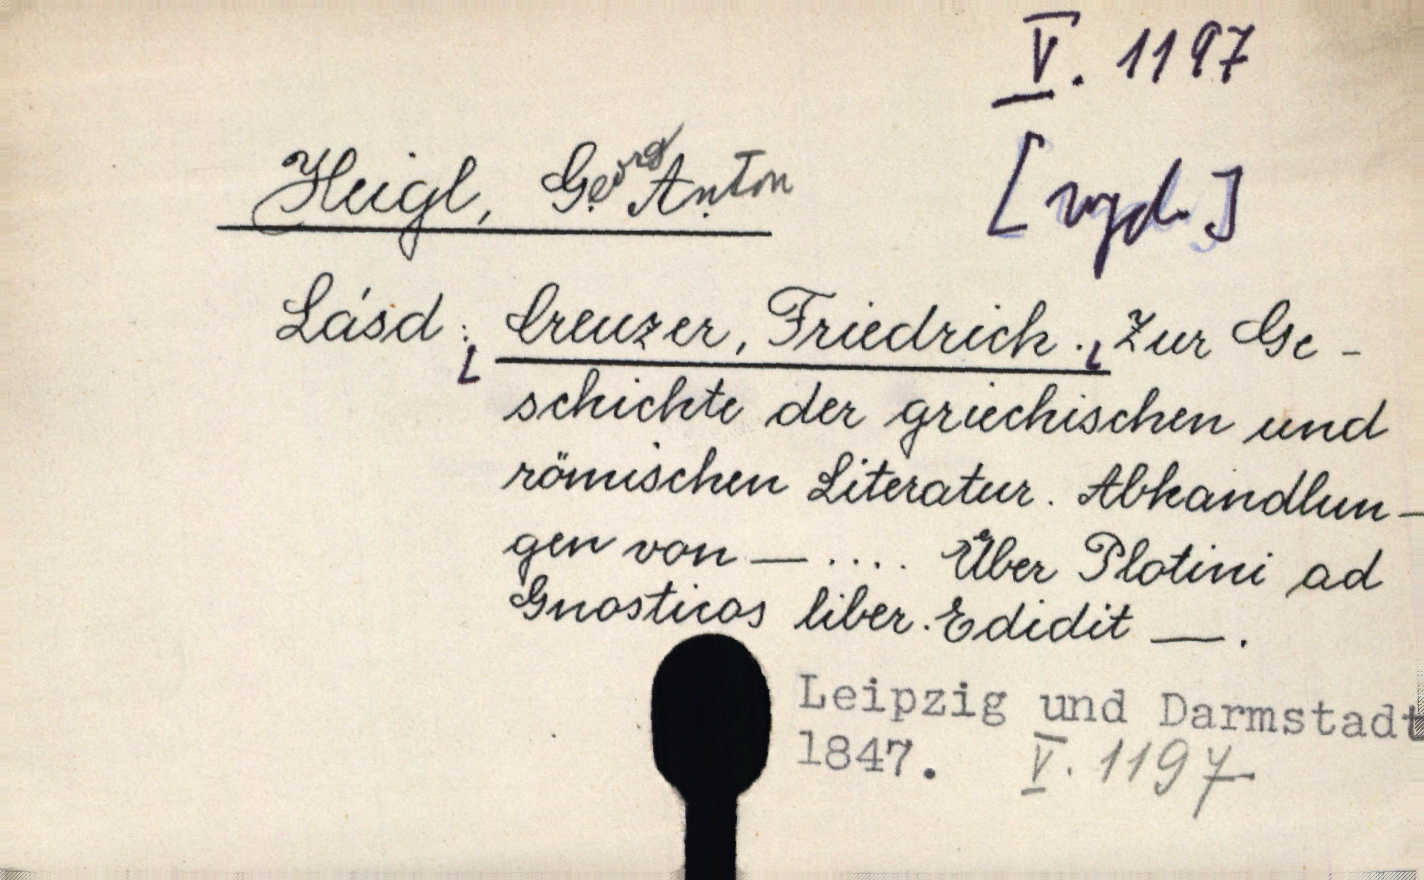 V. 1197
[ugd.]
Heigl, Georg Anton
Lásd: Creuzer, Friedrich. Zur Ge-
schichte der griechischen und
römischen Literatur. Abhandlun-
gen von — .... Über Plotini ad
Gnosticos liber. Edidit —.
Leipzig und Darmstadt
1847. V. 1197